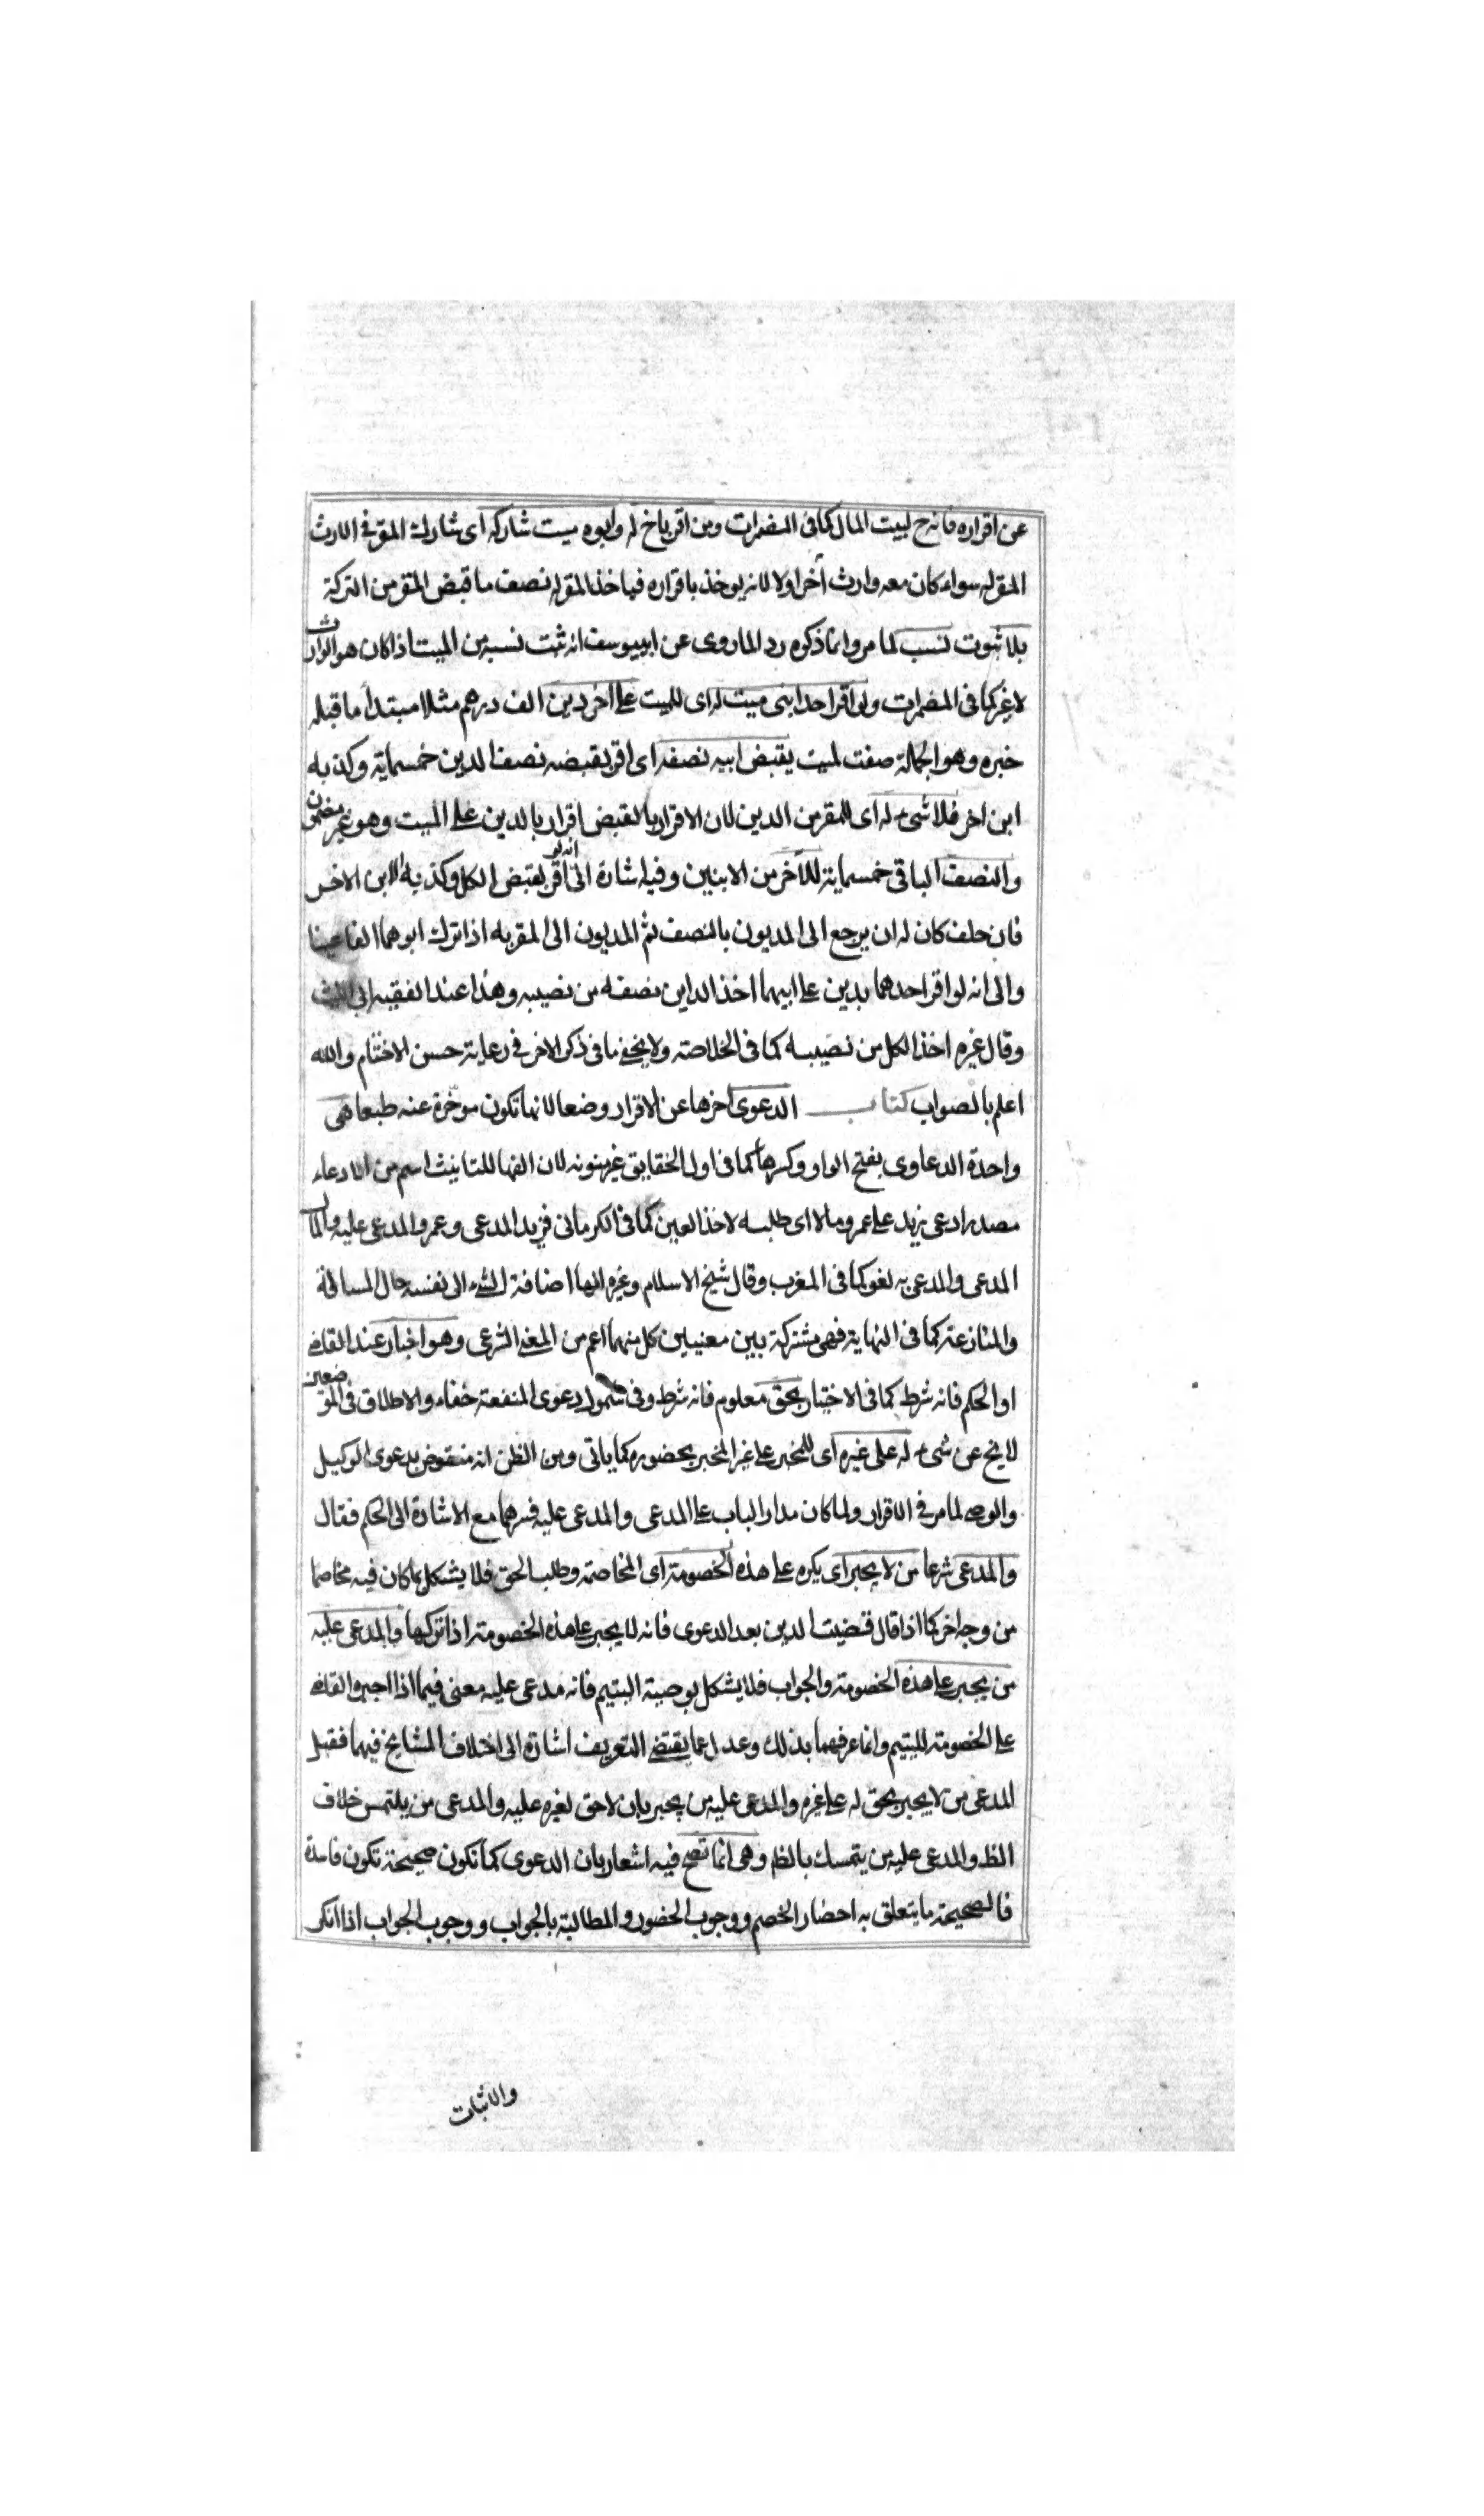 عن اقراره فانه ح لبيت المال كما فى المضمرات ومن اقر باخ له وابوه ميت شاركه اى شارك المقر فى الارث
المقر له سواء كان معه وارث آخر اولا لانه يوخذ باقراره فياخذ المقر له نصف ما قبض المقر من التركة
بلا ثبوت نسب لما مر وانما ذكره رد الما روى عن ابى يوسف انه ثبت نسبه من الميت اذا كان هو الوارث
لا غير كما فى المضمرات ولو اقر احد ابنى ميت له اى للميت على اخر دين الف درهم مثلا مبتدأ ما قبله
خبره وهو الجملة صفت لميت يقبض ابيه نصفه اى اقر بقبضه نصف الدين خمسماية وكذبه
ابن اخر فلا شىء له اى للمقر من الدين لان الاقرار بالقبض اقرار بالدين على الميت وهو غير مضمون
والنصف الباقى خمسماية للآخر من الابنين وفيه اشارة الى انه لو اقر بقبض الكل وكذبه الابن الاخر
فان حلف كان له ان يرجع الى المديون بالنصف ثم المديون الى المقر به اذا ترك ابوهما الفا عينا
والى انه لو اقر احدهما بدين على ابيهما اخذ الداين نصفه من نصيبه وهذا عند الفقيه ابى الليث
وقال غيره اخذ الكل من نصيبه كما فى الخلاصة ولا يخفى ما فى ذكر الاخر فى رعاية حسن الاختتام والله
اعلم بالصواب كتاب الدعوى اخرها عن الاقرار وضعا لانها تكون موخرة عنه طبعا هى
واحدة الدعاوى بفتح الواو وكسرها كما فى اول الحقايق غير منونه لان الفها للتانيث اسم من الادعاء
مصدر ادعى زيد على عمرو مالا اى طلبه لاخذ العين كما فى الكرمانى فزيد المدعى وعمرو المدعى عليه والمال
المدعى والمدعى به لغو كما فى المغرب وقال شيخ الاسلام وغيره انها اضافة الشىء الى نفسه حال المسالمة
والمنازعة كما فى النهاية فهى مشتركة بين معنيين كل منهما اعم من المعنى الشرعى وهو اخبار عند القاضى
او الحكم فانه شرط كما فى الاختيار بحق معلوم فانه شرط وفى شمول دعوى المنفعة خفاء والاطلاق فى الموضعين
لا يخ عن شىء له على غيره اى للمخبر على غير المخبر بحضوره كما ياتى ومن الظن انه منقوض بدعوى الوكيل
والوصى لما مر فى الاقرار ولما كان مدار الباب على المدعى والمدعى عليه فسرهما مع الاشارة الى الحكم فقال
والمدعى شرعا من لا يجبر اى يكره على هذه الخصومة اى المخاصمة وطلب الحق فلا يشكل بما كان فيه مخاصما
من وجه اخر كما اذا قال قضيت الدين بعد الدعوى فانه لا يجبر على هذه الخصومة اذا تركها والمدعى عليه
من يجبر على هذه الخصومة والجواب فلا يشكل بوصية اليتيم فانه مدعى عليه معنى فيما اذا اجبره القاضى
على الخصومة لليتيم وانما عرفهما بذلك وعدل عما يقتضى التعريف اشارة الى اختلاف المشايخ فيهما فقيل
المدعى من لا يجبر بحق له على غيره والمدعى عليه من يجبر بان لا حق لغيره عليه والمدعى من يلتمس خلاف
الظ والمدعى عليه من يتمسك بالظ وهى انما تصح فيه اشعار بان الدعوى كما تكون صحيحة تكون فاسدة
فالصحيحة ما يتعلق به احضار الخصم ووجوب الحضور والمطالبة بالجواب ووجوب الجواب اذا انكر
والاثبات